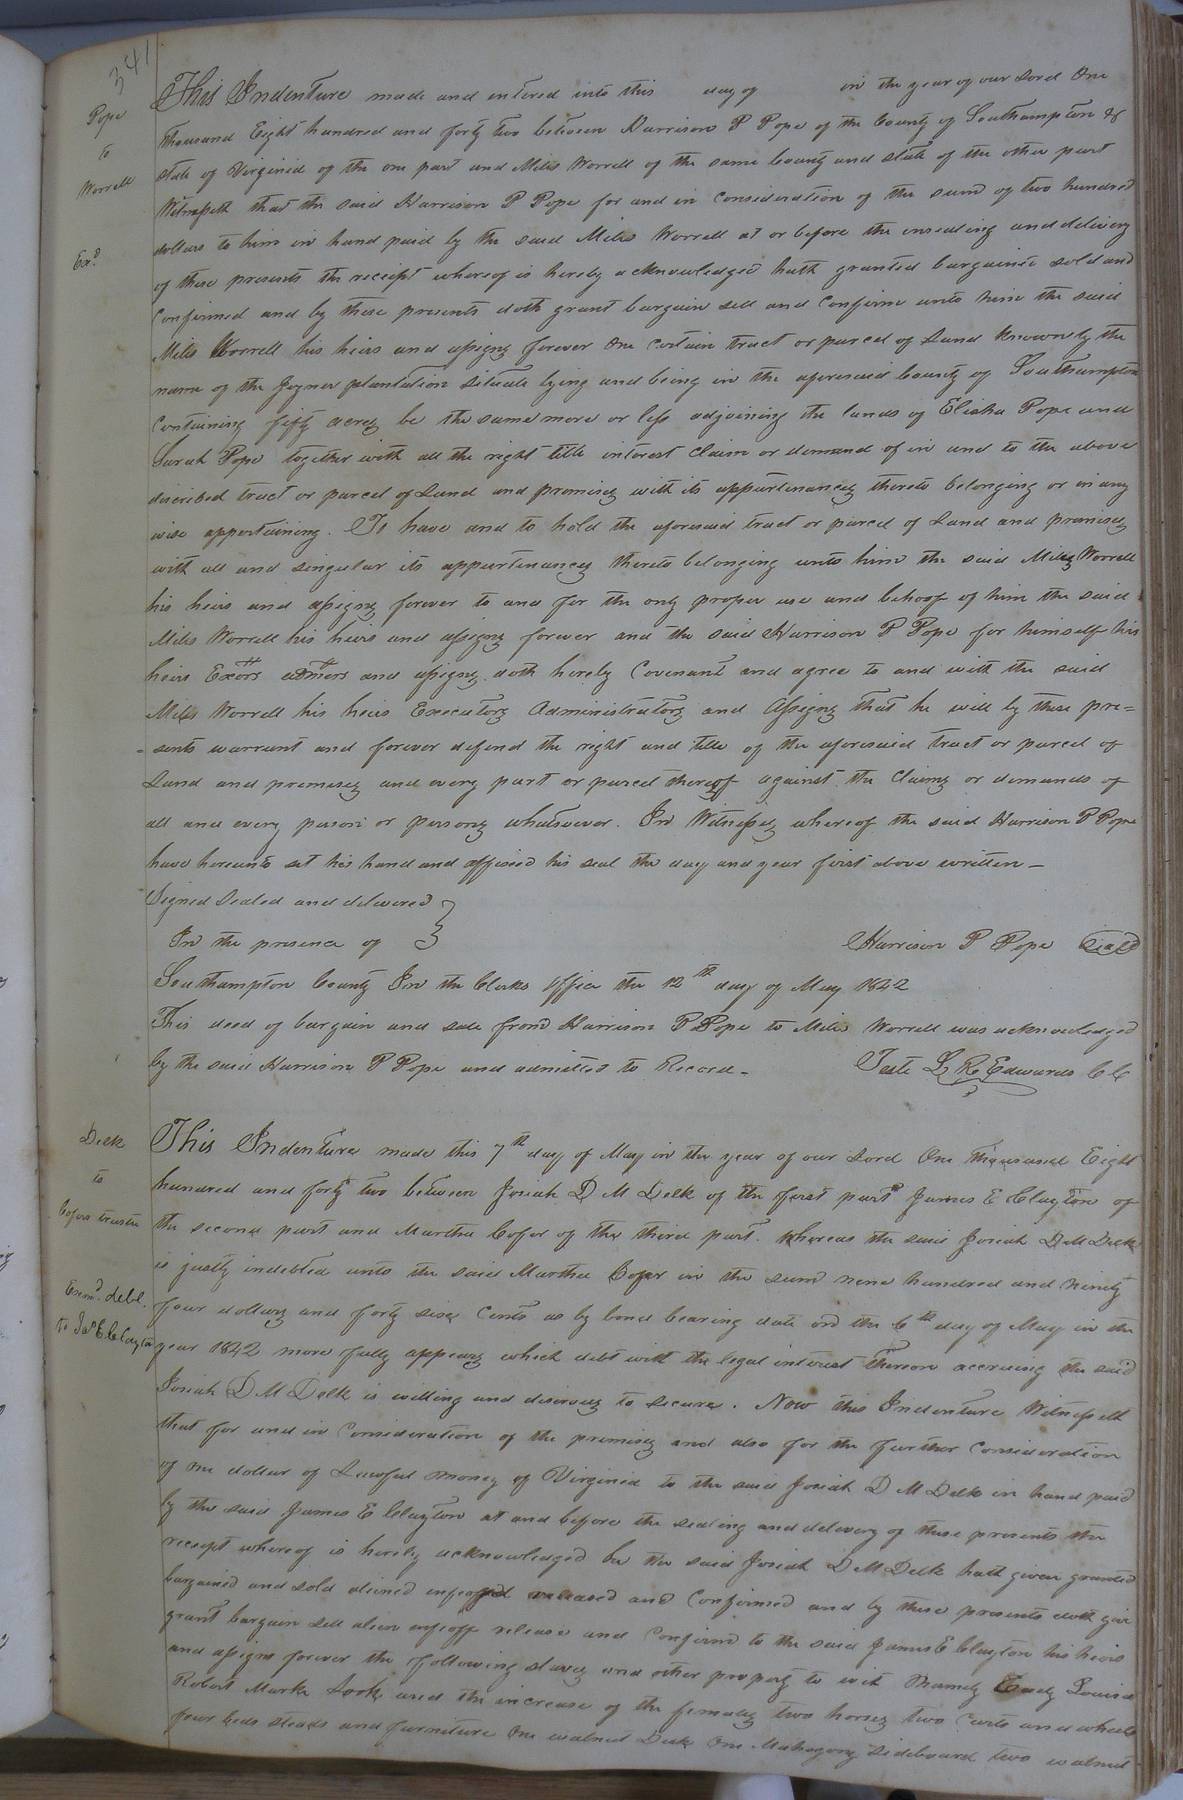 341
Pope
to
Worrell
Exd
This Indenture made and entered into this day of in the year of our Lord One
thousand Eight hundred and forty two between Harrison P Pope of the County of Southampton &
state of Virginia of the one part and Miles Worrell of the same County and state of the other part
Witnesseth that the said Harrison P Pope for and in consideration of the sum of two hundred
dollars to him in hand paid by the said Miles Worrell at or before the ensealing and delivery
of these presents the receipt whereof is hereby acknowledged hath granted bargained sold and
Confirmed and by these presents doth grant bargain sell and Confirm unto him the said
Miles Worrell his heirs and assigns forever One certain tract or parcel of Land known by the
name of the Joyner plantation situate lying and being in the aforesaid County of Southampton
Containing fifty acres be the same more or less adjoining the lands of Elisha Pope and
Sarah Pope together with all the right title interest claim or demand of in and to the above
discribed tract or parcel of Land and premises with its appurtenances thereto belonging or in any
wise appertaining. To have and to hold the aforesaid tract or parcel of Land and premises
with all and singular its appurtenances thereto belonging unto him the said Miles Worrell
his heirs and assigns forever to and for the only proper use and behoof of him the said
Miles Worrell his heirs and assigns forever and the said Harrison P Pope for himself his
heirs Exors admors and assigns doth hereby Covenant and agree to and with the said
Miles Worrell his heirs Executors Administrators and Assigns that he will by these pre=
=sents warrant and forever defend the right and title of the aforesaid tract or parcel of
Land and premises and every part or parcel thereof against the claims or demands of
all and every person or persons whatsoever. In Witness whereof the said Harrison P Pope
have hereunto set his hand and affixed his seal the day and year first above written -
Signed Sealed and delivered }
In the presence of
Harrison P Pope Seal
Southampton County In the Clerks Office the 12th day of May 1842
This deed of bargain and sale from Harrison P Pope to Miles Worrell was acknowledged
by the said Harrison P Pope and admitted to Record - Teste L R Edwards C C
Delk
to
Cofers trustee
Examd. deld.
to Jas E Clayton
This Indenture made this 7th day of May in the year of our Lord One thousand Eight
hundred and forty two between Josiah D M Delk of the first part James E Clayton of
the second part and Martha Cofer of the third part. Whereas the said Josiah D M Delk
is justly indebted unto the said Martha Cofer in the sum nine hundred and ninety
four dollars and forty six cents as by bond bearing date on the 6th day of May in the
year 1842 more fully appears which debt with the legal interest thereon accruing the said
Josiah D M Delk is willing and desirous to secure. Now this Indenture Witnesseth
that for and in Consideration of the premises and also for the further consideration
of one dollar of Lawful money of Virginia to the said Josiah D M Delk in hand paid
by the said James E Clayton at and before the sealing and delivery of these presents the
receipt whereof is hereby acknowledged he the said Josiah D M Delk hath given granted
bargained and sold aliened enfeoffed released and Confirmed and by these presents doth give
grant bargain sell alien enfeoff release and Confirm to the said James E Clayton his heirs
and assigns forever the following slaves and other property to wit Mamely Louisa
Robert Mark and the increase of the females two horses two carts and wheels
four beds steads and furniture One walnut Desk One Mahogony sideboard two walnut